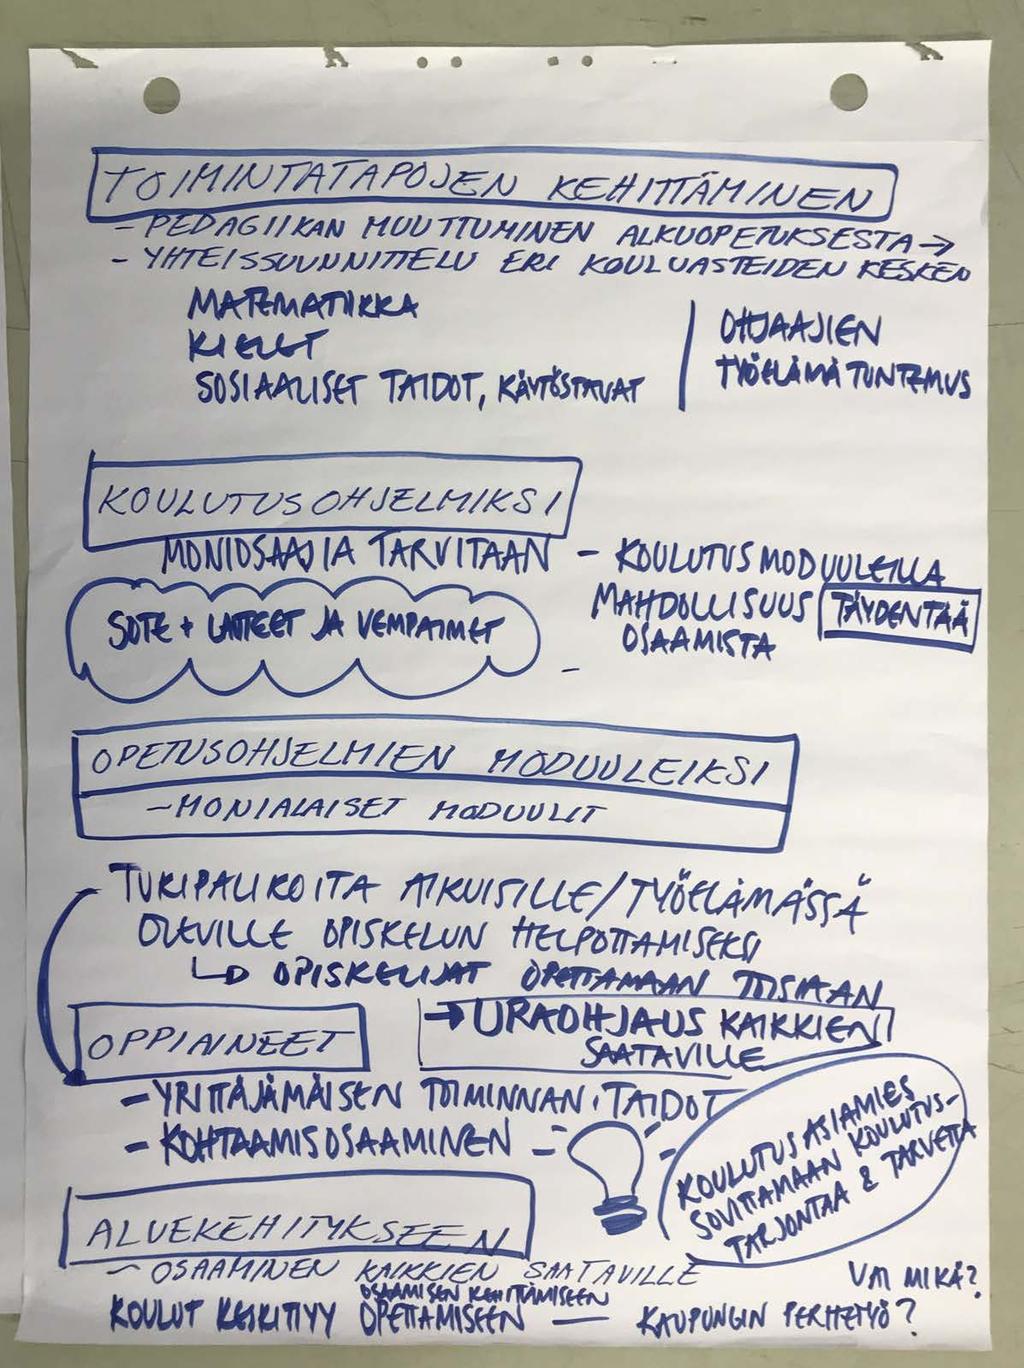 TOIMINTATAPOJEN KEHITTÄMINEN
- PEDAGIIKAN MUUTTUMINEN ALKUOPETUKSESTA →
- YHTEISSUUNNITTELU ERI KOULUASTEIDEN KESKEN
MATEMATIIKKA
KIELET
SOSIAALISET TAIDOT, KÄYTÖSTAVAT
OHJAAJIEN
TYÖELÄMÄ TUNTEMUS
KOULUTUSOHJELMIKSI
MONIOSAAJIA TARVITAAN - KOULUTUS MODUULEILLA
MAHDOLLISUUS TÄYDENTÄÄ
OSAAMISTA
SOTE + LAITTEET JA VEMPAIMET
-
OPETUSOHJELMIEN MODUULEIKSI
- MONIALAISET MODUULIT
TUKIPALIKOITA AIKUISILLE/TYÖELÄMÄSSÄ
OLEVILLE OPISKELUN HELPOTTAMISEKSI
↳ OPISKELIJAT OPETTAMAAN TOISIAAN
OPPIAINEET
→ URAOHJAUS KAIKKIEN
SAATAVILLE
- YRITTÄJÄMÄISEN TOIMINNAN, TAIDOT
- KOHTAAMISOSAAMINEN
KOULUTUSASIAMIES
SOVITTAMAAN KOULUTUS-
TARJONTAA & TARVETTA
ALUEKEHITYKSEEN
- OSAAMINEN KAIKKIEN SAATAVILLE
VAI MIKÄ?
OSAAMISEN KEHITTÄMISEEN
KOULUT KESKITTYY OPETTAMISEEN — KAUPUNGIN PERHETYÖ?